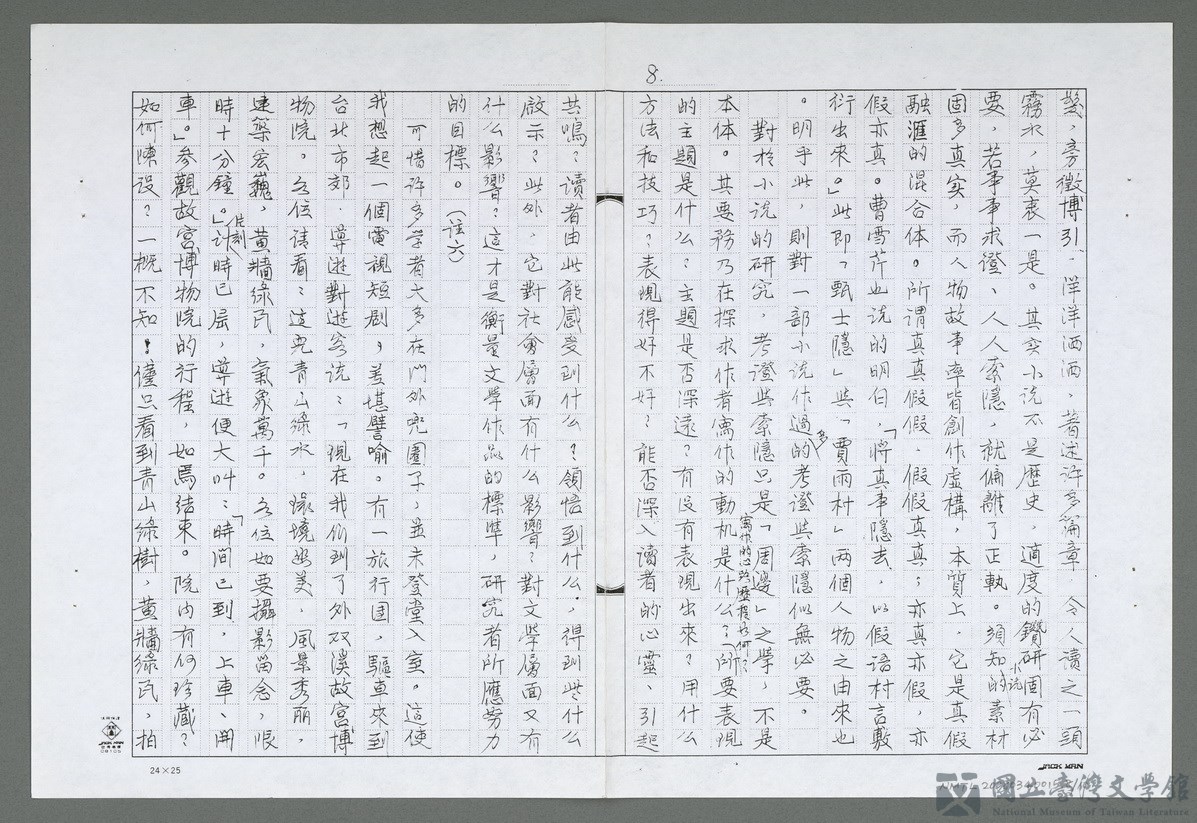 8.
幾，旁徵博引，洋洋洒洒，著述许多篇章，令人读之一頭
霧水，莫衷一是。其实小说不是歷史，適度的鑽研固有必
要，若事事求證、人人索隱，就偏離了正軌。须知小说的素材
固多真实，而人物故事率皆創作虚構，本質上，它是真假
融滙的混合体。所謂真真假假，假假真真；亦真亦假，亦
假亦真。曹雪芹也说的明白，「將真事隱去，以假语村言敷
衍出來。」此即「甄士隱」與「賈雨村」两個人物之由來也
。明乎此，則對一部小说作過多的考證與索隱似無必要。
對於小说的研究，考證與索隱只是「周邊」之學，不是
本体。其要務乃在探求作者寫作的動机是什么？寫作的心路歷程為何？所要表現
的主題是什么？主題是否深遠？有没有表現出來？用什么
方法和技巧？表現得好不好？能否深入讀者的心靈、引起
共鳴？讀者由此能感受到什么？領悟到什么，得到些什么
啟示？此外，它對社會層面有什么影響？對文學層面又有
什么影響？這才是衡量文學作品的標準，研究者所應努力
的目標。（註六）
可惜许多学者大多在门外兜圈子，並未登堂入室。這使
我想起一個電視短剧，差堪譬喻。有一旅行团，驅車來到
台北市郊，導遊對遊客说：「現在我们到了外双溪故宮博
物院。各位请看：這兒青山綠水，環境幽美，風景秀丽，
建築宏巍，黄牆綠瓦，氣象萬千。各位如要攝影留念，限
時十分鐘。」片刻時已屆，導遊便大叫：「時间已到，上車、開
車。」參觀故宮博物院的行程，如焉结束。院内有何珍藏？
如何陳设？一概不知！僅只看到青山綠樹，黄牆綠瓦，拍
24×25
JACK MAN
國立臺灣文學館
National Museum of Taiwan Literature